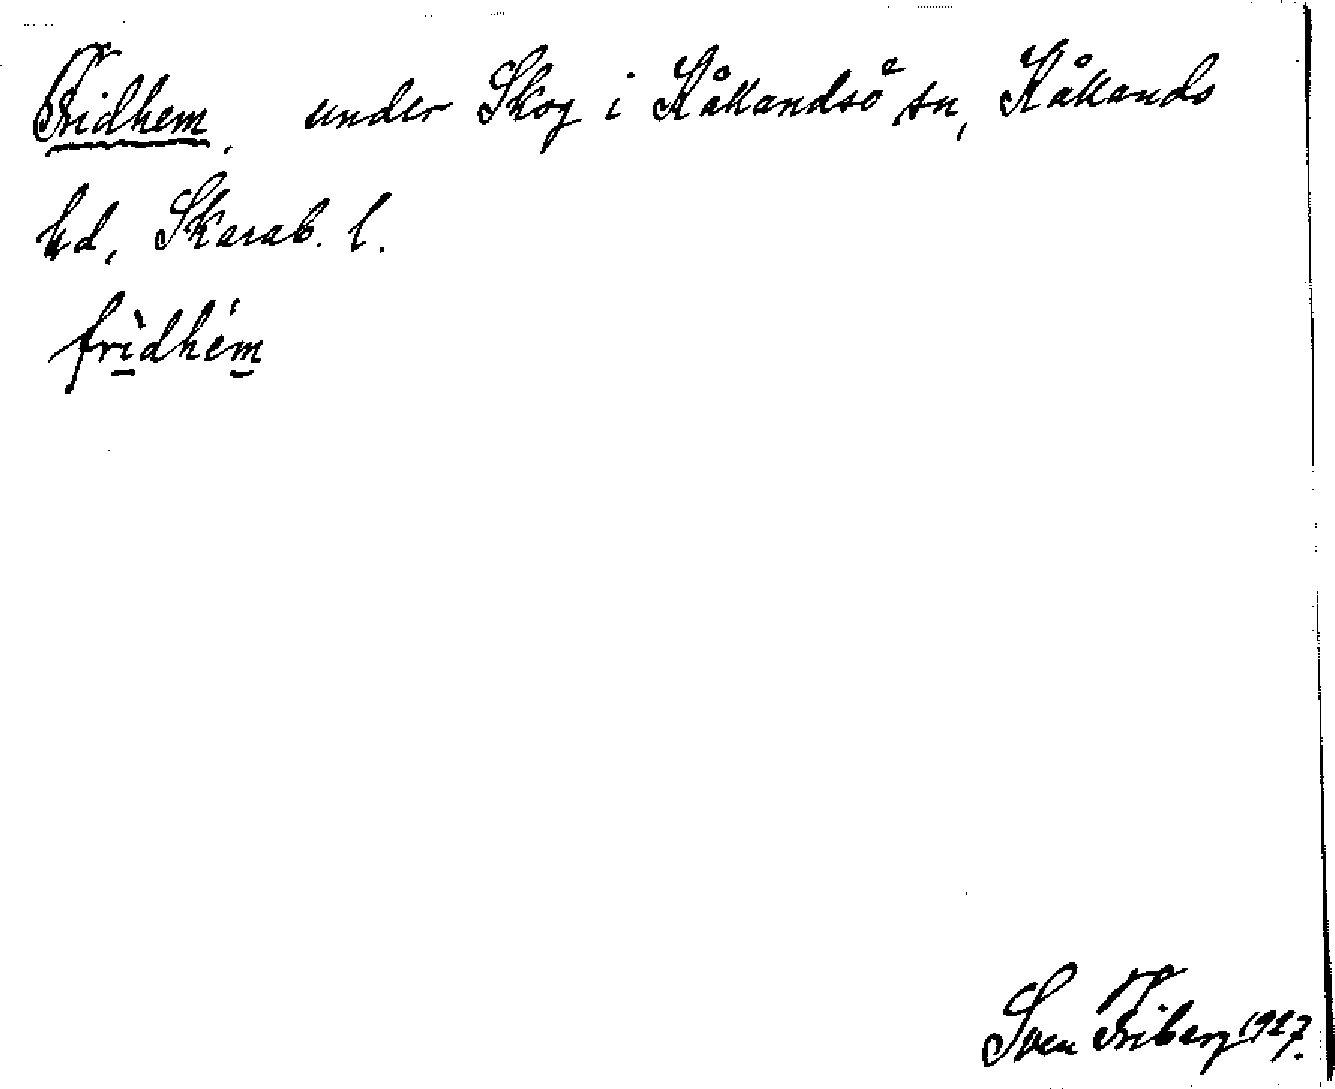 Fridhem, under Skog i Kållandsö sn, Kållands
hd, Skarab. l.
frì̠dhém̠
Sven Friberg 1927.